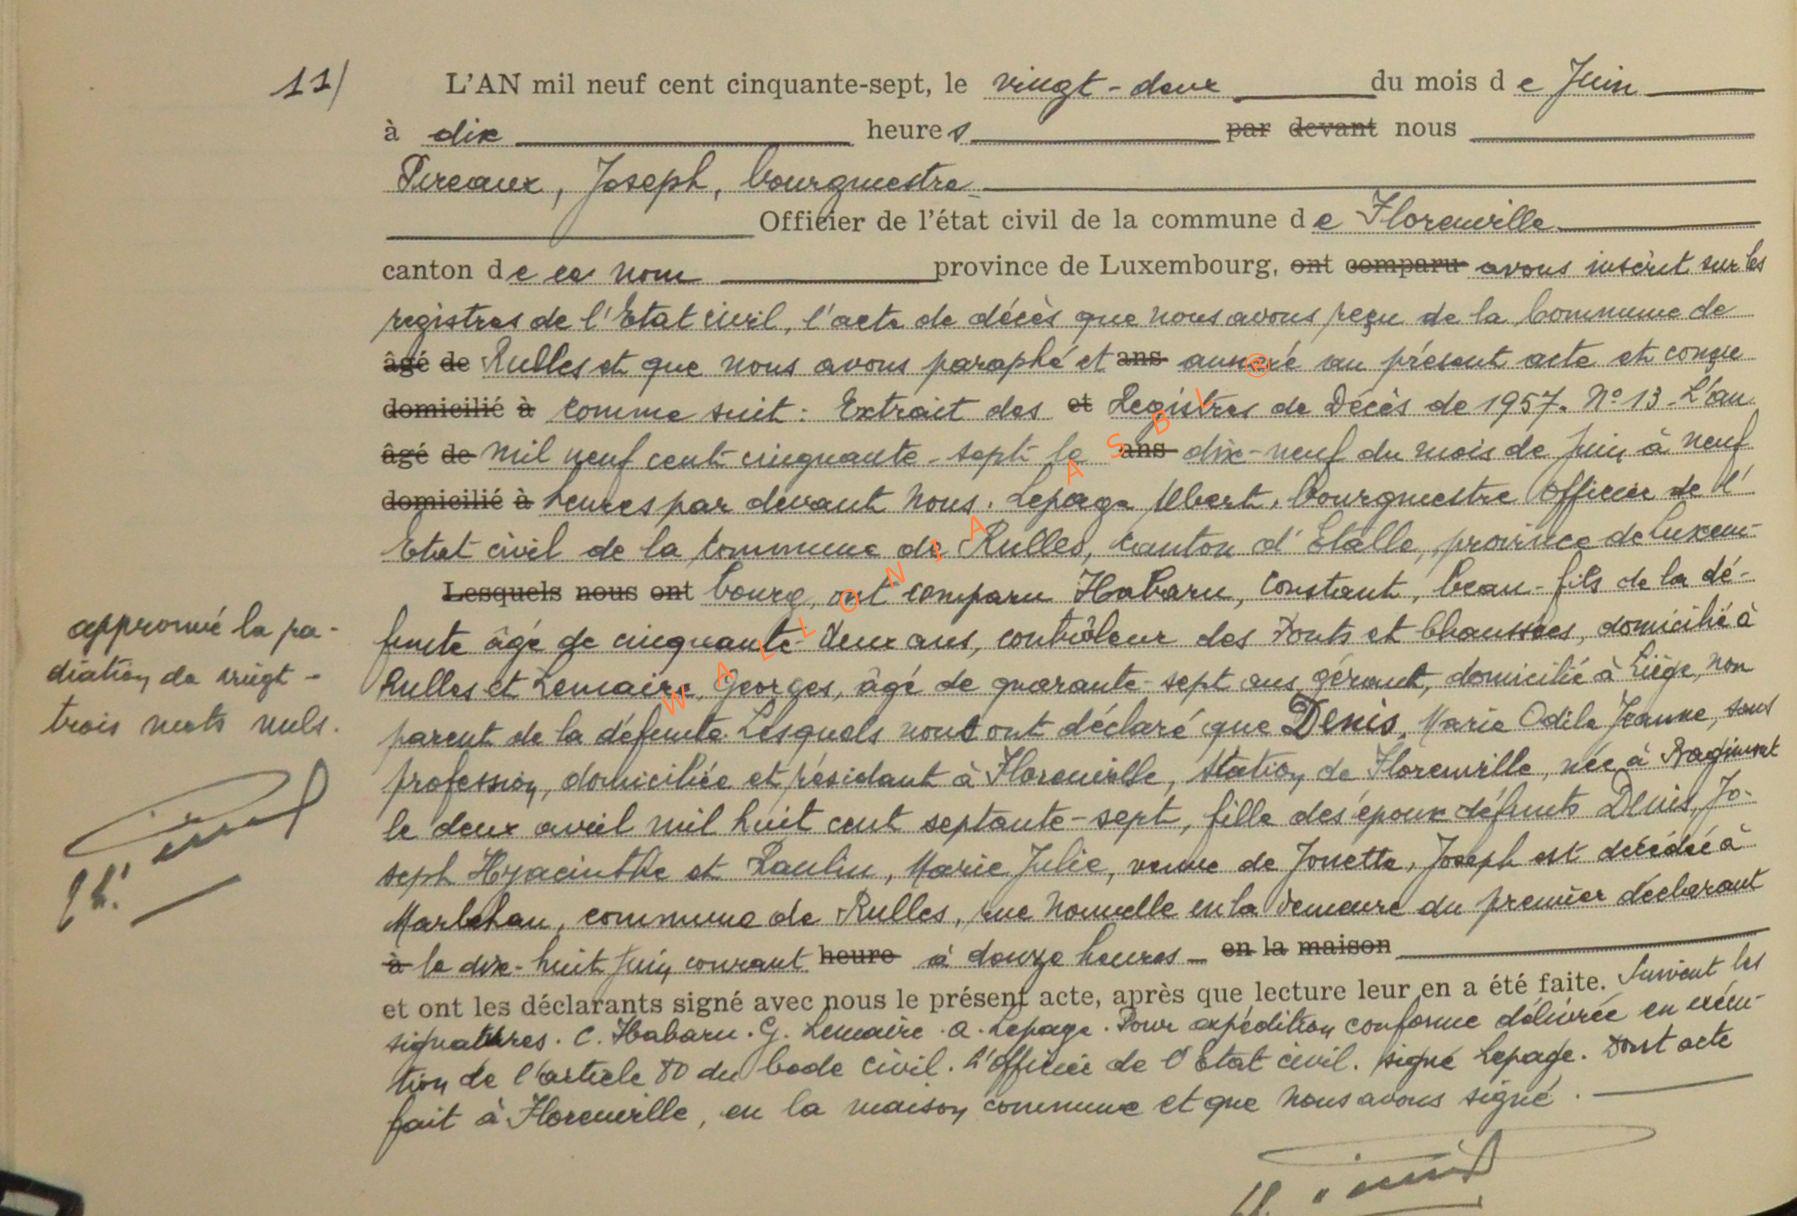 11/
L'AN mil neuf cent cinquante-sept, le vingt-deux du mois de Juin
à dix heures par devant nous
Pireaux, Joseph, bourgmestre
Officier de l'état civil de la commune de Florenville
canton de ce nom province de Luxembourg, ont comparu avons inscrit sur les
registres de l'Etat civil, l'acte de décès que nous avons reçu de la Commune de
âgé de Rulles et que nous avons paraphé et ans annexé au présent acte et conçu
domicilié à comme suit : Extrait des et Registres de Décès de 1957. N° 13 - L'an
âgé de mil neuf cent cinquante-sept le ans dix-neuf du mois de Juin à neuf
domicilié à heures par devant Nous, Lepage Albert, bourgmestre Officier de l'
Etat civil de la Commune de Rulles, canton d'Etalle, province de Luxem-
Lesquels nous ont bourg, ont comparu Habaru, Constant, beau-fils de la dé-
funte âgé de cinquante-deux ans, contrôleur des Ponts et Chaussées, domicilié à
Rulles et Lemaire, Georges, âgé de quarante-sept ans gérant, domicilié à Liège, non
parent de la défunte. Lesquels nous ont déclaré que Denis, Marie Odile Jeanne, sans
profession, domiciliée et résidant à Florenville, Station de Florenville, née à
le deux avril mil huit cent septante-sept, fille des époux défunts Denis, Jo-
seph Hyacinthe et Raulin, Marie Julie, veuve de Jouette, Joseph est décédée à
Marbehan, commune de Rulles, rue Nouvelle en la demeure du premier déclarant
à le dix-huit Juin courant heure à douze heures - en la maison
et ont les déclarants signé avec nous le présent acte, après que lecture leur en a été faite. Suivent les
signatures. C. Habaru. G. Lemaire. A. Lepage. Pour expédition conforme délivrée en exécu-
tion de l'article 80 du Code civil. L'Officier de l'Etat civil. signé Lepage. Dont acte
fait à Florenville, en la maison commune et que Nous avons signé.
approuvé la ra-
diation de vingt-
trois mots nuls.
WALLONIA ASBL ©